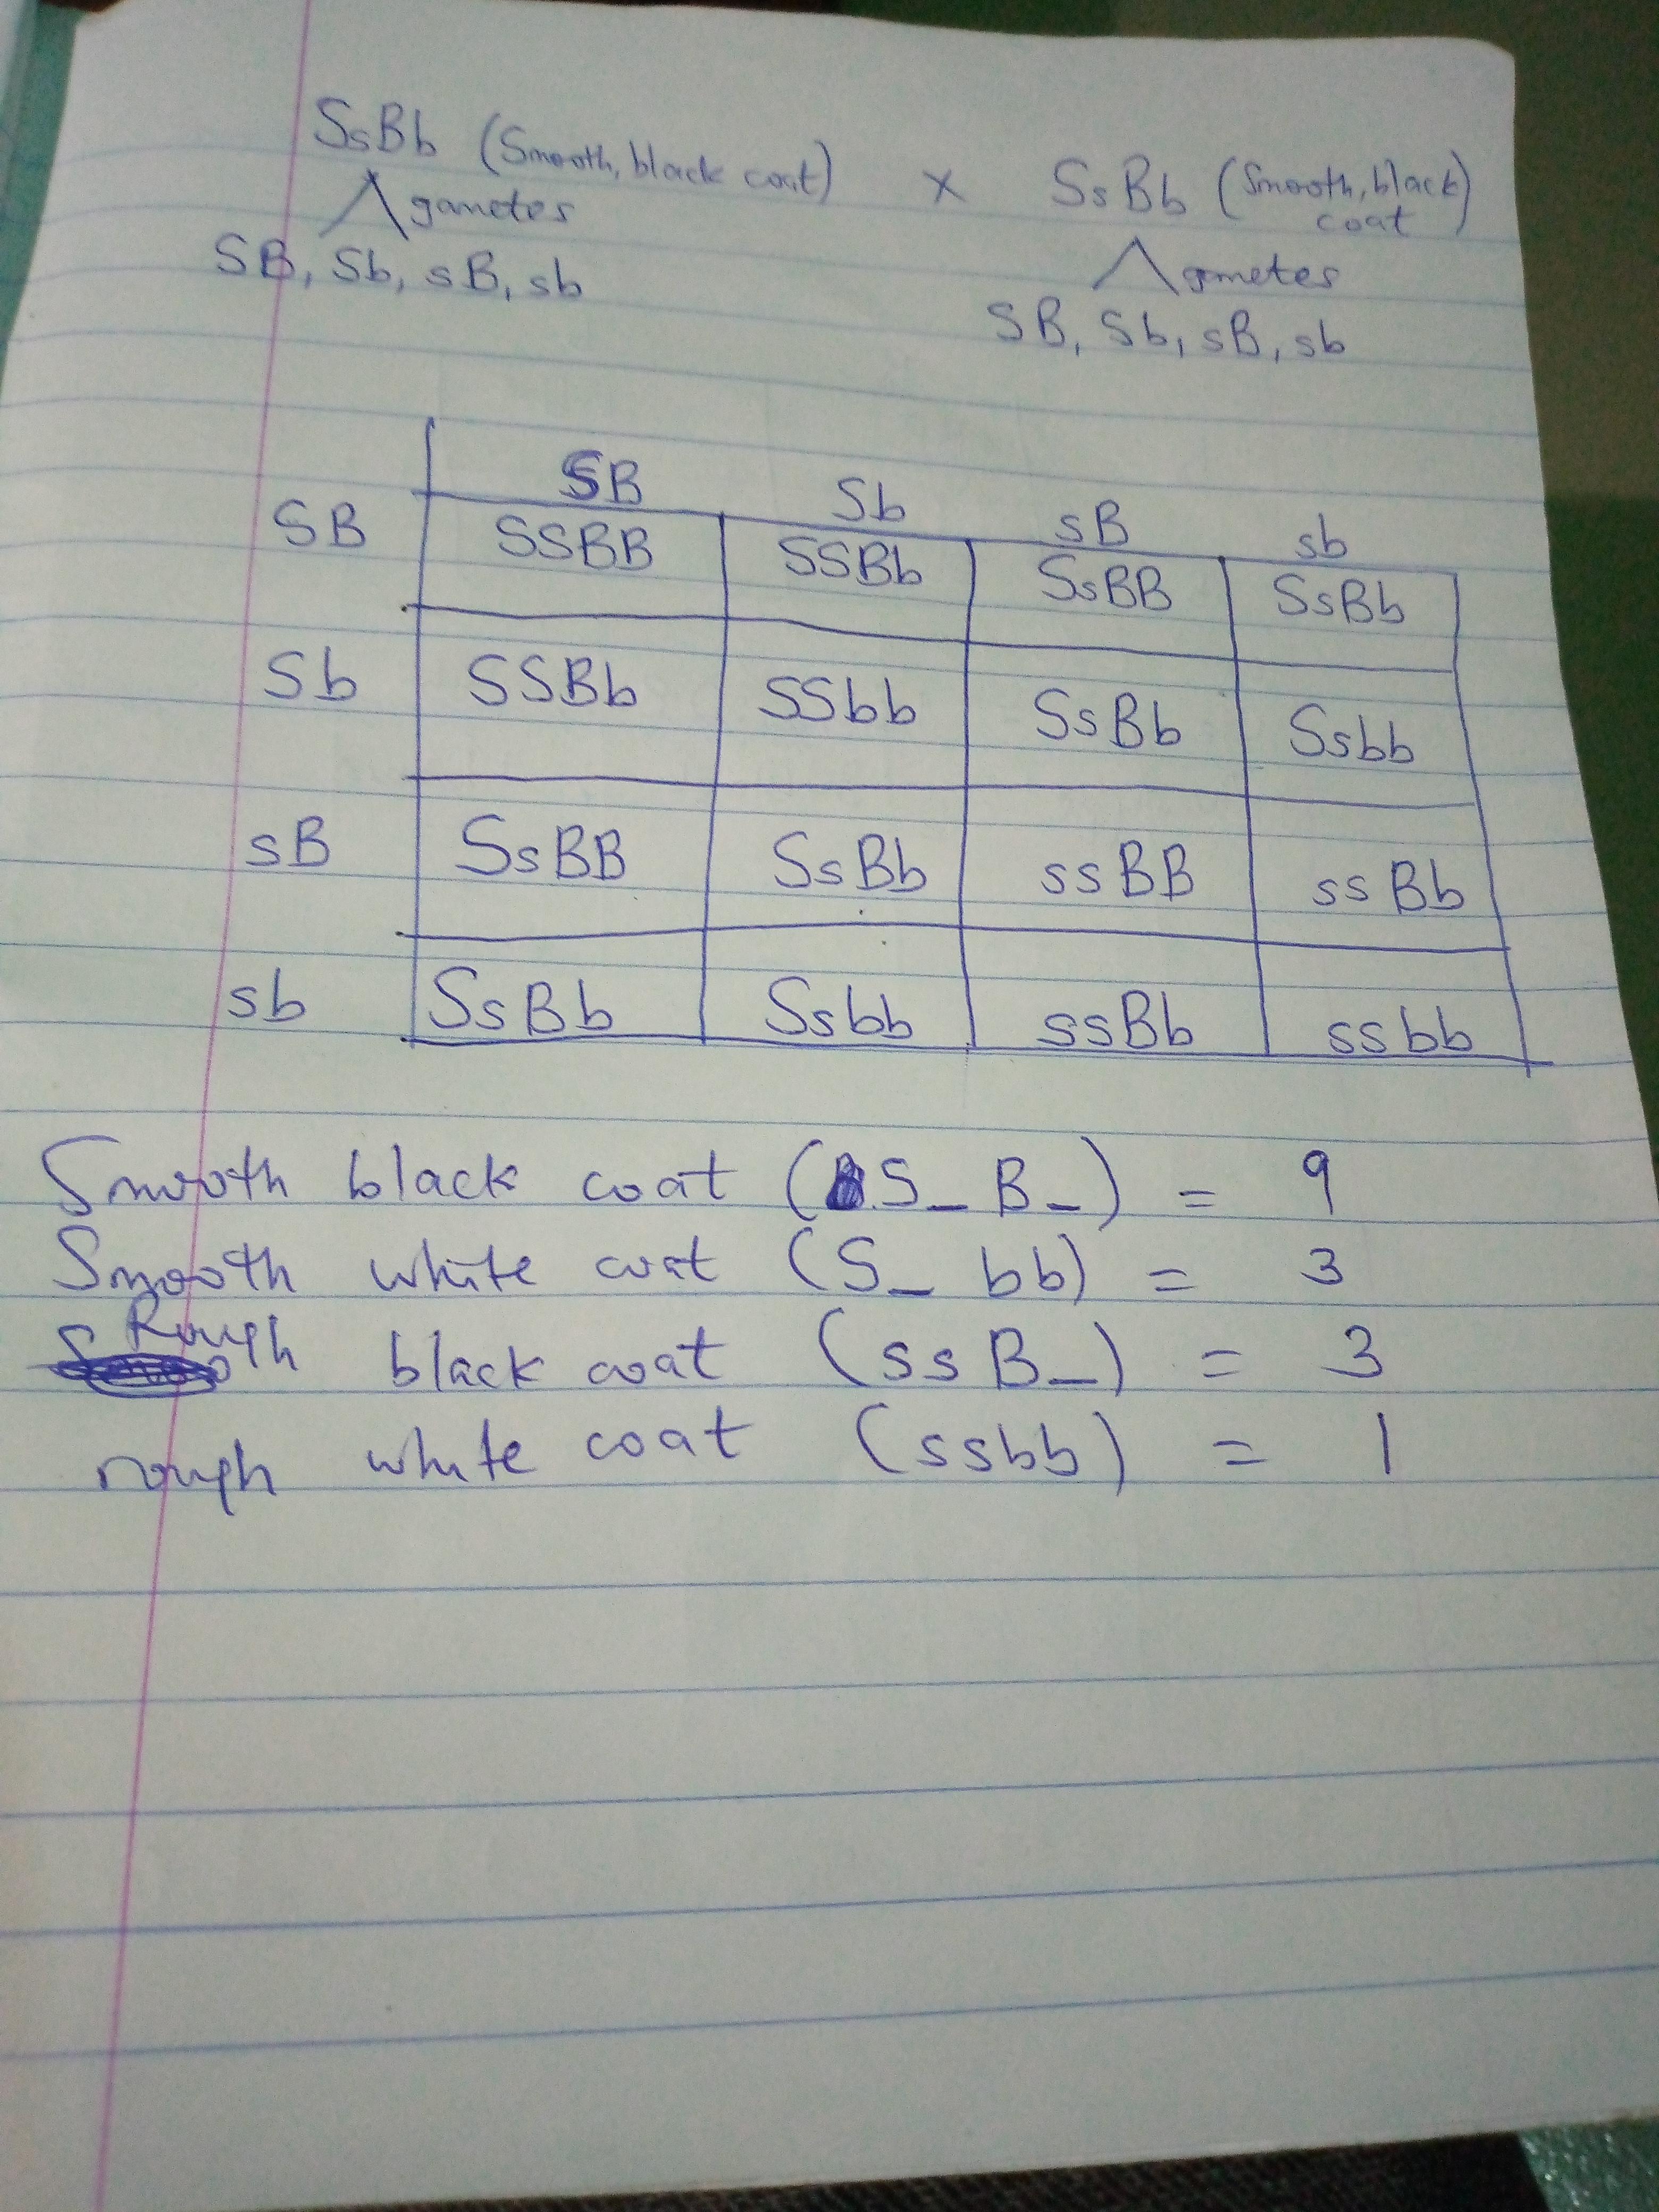 SsBb (Smooth, black coat) x SsBb (Smooth, black coat)
gametes gametes
SB, Sb, sB, sb SB, Sb, sB, sb
SB Sb sB sb
SB SSBB SSBb SsBB SsBb
Sb SSBb SSbb SsBb Ssbb
sB SsBB SsBb ssBB ssBb
sb SsBb Ssbb ssBb ssbb
Smooth black coat (S_ B_) = 9
Smooth white coat (S_ bb) = 3
Rough black coat (ss B_) = 3
rough white coat (ssbb) = 1